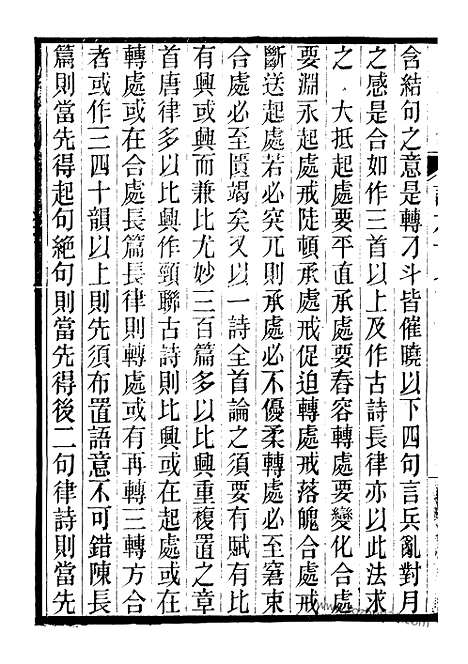 含結句之意是轉刁斗皆催曉以下四句言兵亂對月
之感是合如作三首以上及作古詩長律亦以此法求
之大抵起處要平直承處要舂容轉處要變化合處
要淵永起處戒陡頓承處戒促迫轉處戒落魄合處戒
斷送起處若必突兀則承處必不優柔轉處必至窘束
合處必至匱竭矣又以一詩全首論之須要有賦有比
有興或興而兼比尤妙三百篇多以比興重複置之章
首唐律多以比興作頸聯古詩則比興或在起處或在
轉處或在合處長篇長律則轉處或有再轉三轉方合
者或作三四十韻以上則先須布置語意不可錯陳長
篇則當先得起句絕句則當先得後二句律詩則當先